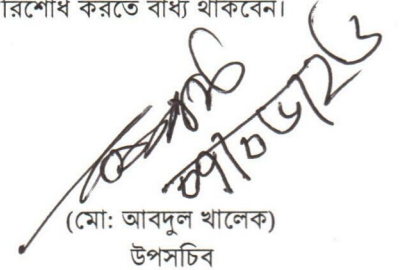 রিশোধ করতে বাধ্য থাকবেন।
(মো: আবদুল খালেক)
উপসচিব